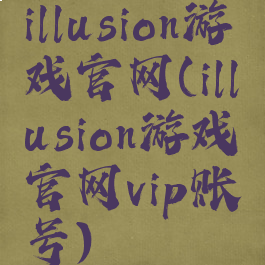 illusion游
戏官网(ill
usion游戏
官网vip账
号)